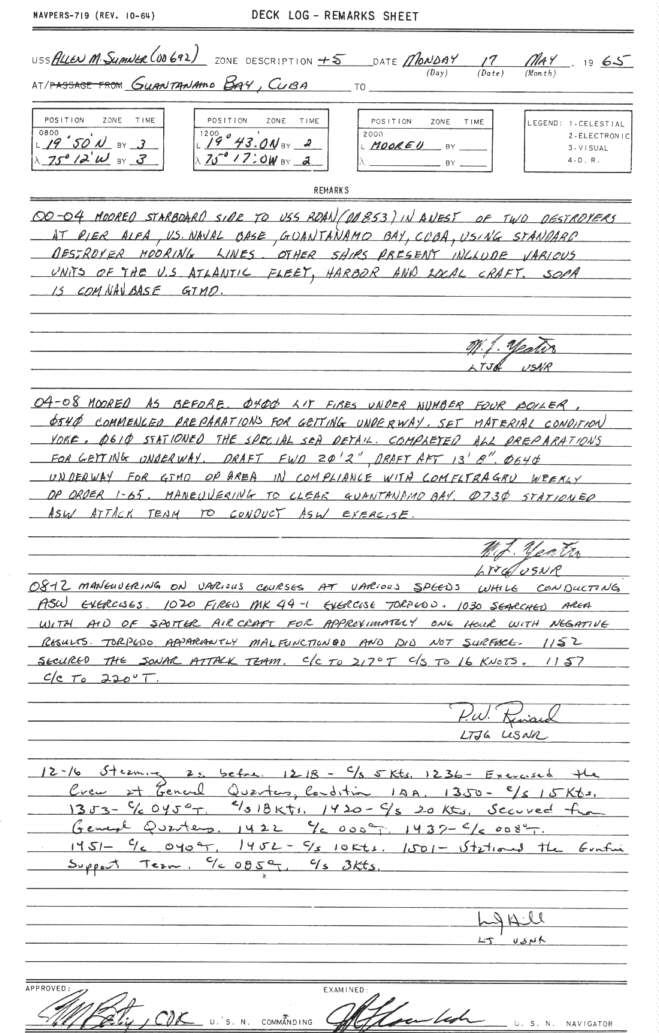 NAVPERS-719 (REV. 10-64) DECK LOG – REMARKS SHEET
USS ALLEN M SUMNER (DD692) ZONE DESCRIPTION +5 DATE MONDAY 17 MAY, 19 65
(Day) (Date) (Month)
AT/PASSAGE FROM GUANTANAMO BAY, CUBA TO
POSITION ZONE TIME POSITION ZONE TIME POSITION ZONE TIME LEGEND: 1-CELESTIAL
0800 1200 2000 2-ELECTRONIC
L 19°50'N BY 3 L 19°43.0N BY 2 L MOORED BY 3-VISUAL
λ 75°12'W BY 3 λ 75°17.0W BY 2 λ BY 4-D. R.
REMARKS
00-04 MOORED STARBOARD SIDE TO USS ROAN (DD853) IN A NEST OF TWO DESTROYERS
AT PIER ALFA, U.S. NAVAL BASE, GUANTANAMO BAY, CUBA, USING STANDARD
DESTROYER MOORING LINES. OTHER SHIPS PRESENT INCLUDE VARIOUS
UNITS OF THE U.S ATLANTIC FLEET, HARBOR AND LOCAL CRAFT. SOPA
IS COMNAVBASE GTMO.
LTJG USNR
04-08 MOORED AS BEFORE. 0400 LIT FIRES UNDER NUMBER FOUR BOILER.
0540 COMMENCED PREPARATIONS FOR GETTING UNDERWAY. SET MATERIAL CONDITION
YOKE. 0610 STATIONED THE SPECIAL SEA DETAIL. COMPLETED ALL PREPARATIONS
FOR GETTING UNDERWAY. DRAFT FWD 20'2", DRAFT AFT 13'8". 0640
UNDERWAY FOR GTMO OP AREA IN COMPLIANCE WITH COMFLTRAGRU WEEKLY
OP ORDER 1-65. MANEUVERING TO CLEAR GUANTANAMO BAY. 0730 STATIONED
ASW ATTACK TEAM TO CONDUCT ASW EXERCISE.
LTJG USNR
08-12 MANEUVERING ON VARIOUS COURSES AT VARIOUS SPEEDS WHILE CONDUCTING
ASW EXERCISES. 1020 FIRED MK 44-1 EXERCISE TORPEDO. 1030 SEARCHED AREA
WITH AID OF SPOTTER AIRCRAFT FOR APPROXIMATELY ONE HOUR WITH NEGATIVE
RESULTS. TORPEDO APPARANTLY MALFUNCTIONED AND DID NOT SURFACE. 1152
SECURED THE SONAR ATTACK TEAM. C/C TO 217°T C/S TO 16 KNOTS. 1157
C/C TO 220°T.
P.W.
LTJG USNR
12-16 Steaming as before. 1218 - C/S 5 Kts. 1236 - Exercised the
Crew at General Quarters, Condition 1AA. 1350 - C/S 15 Kts.
1353 - C/C 045°T. C/S 18 Kts. 1420 - C/S 20 Kts, Secured from
General Quarters. 1422 C/C 000°T. 1437 - C/C 008°T.
1451 - C/C 040°T, 1452 - C/S 10 Kts. 1501 - Stationed the Gunfire
Support Team. C/C 085°T. C/S 3 Kts.
Hill
LT USNR
APPROVED: EXAMINED:
CDR U. S. N. COMMANDING U. S. N. NAVIGATOR